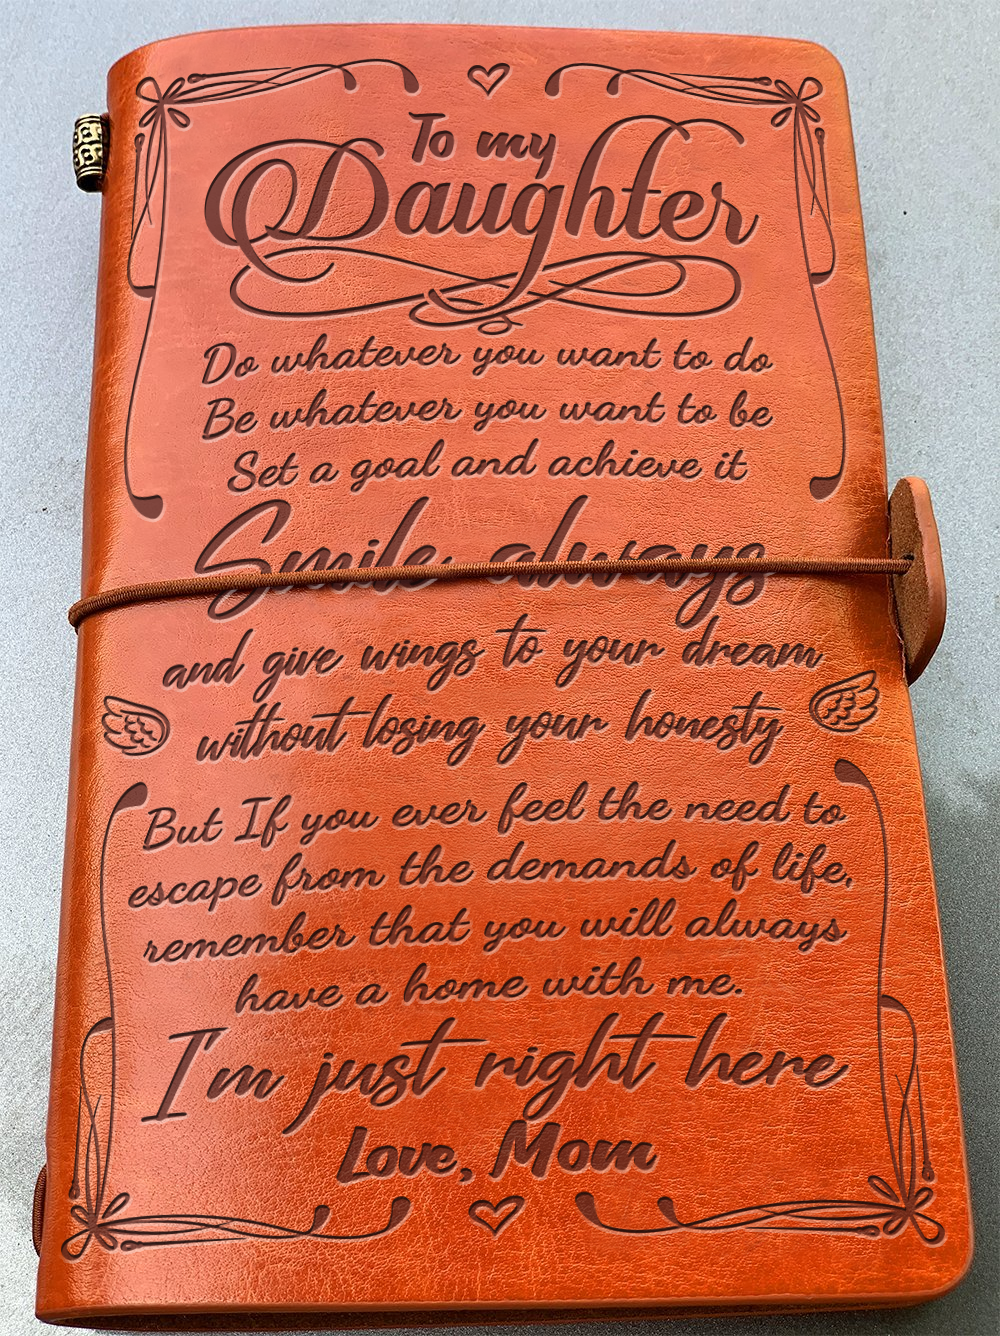 To my
Daughter
Do whatever you want to do
Be whatever you want to be
Set a goal and achieve it
Smile always
and give wings to your dream
without losing your honesty
But If you ever feel the need to
escape from the demands of life,
remember that you will always
have a home with me.
I'm just right here
Love, Mom